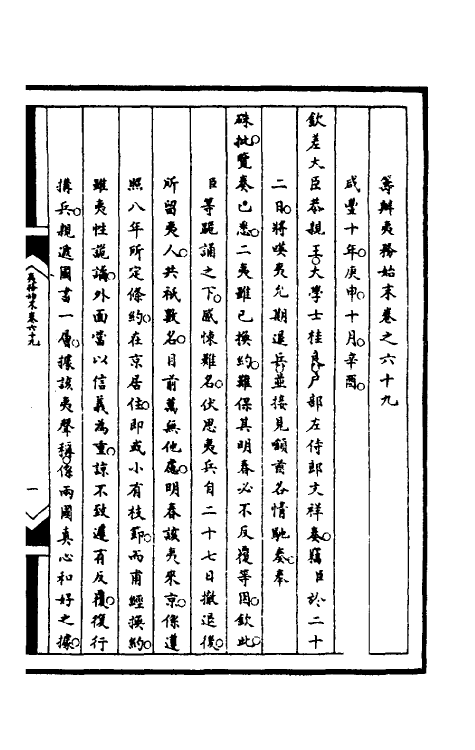 籌辦夷務始末卷之六十九
咸豐十年庚申十月辛酉
欽差大臣恭親王大學士桂良戶部左侍郎文祥奏竊臣於二十
二日將𠸄夷允期退兵並接見額首各情馳奏奉
硃批覽奏已悉二夷雖已換約難保其明春必不反覆等因欽此
臣等跪誦之下感悚難名伏思夷兵自二十七日撤退後
所留夷人共祇數名目前萬無他慮明春該夷來京係遵
照八年所定條約在京居住即或小有枝節而甫經換約
雖夷性詭譎外面當以信義為重諒不致遽有反覆復行
搆兵親遞國書一層據該夷聲稱係兩國真心和好之據
夷務始末卷六十九
一